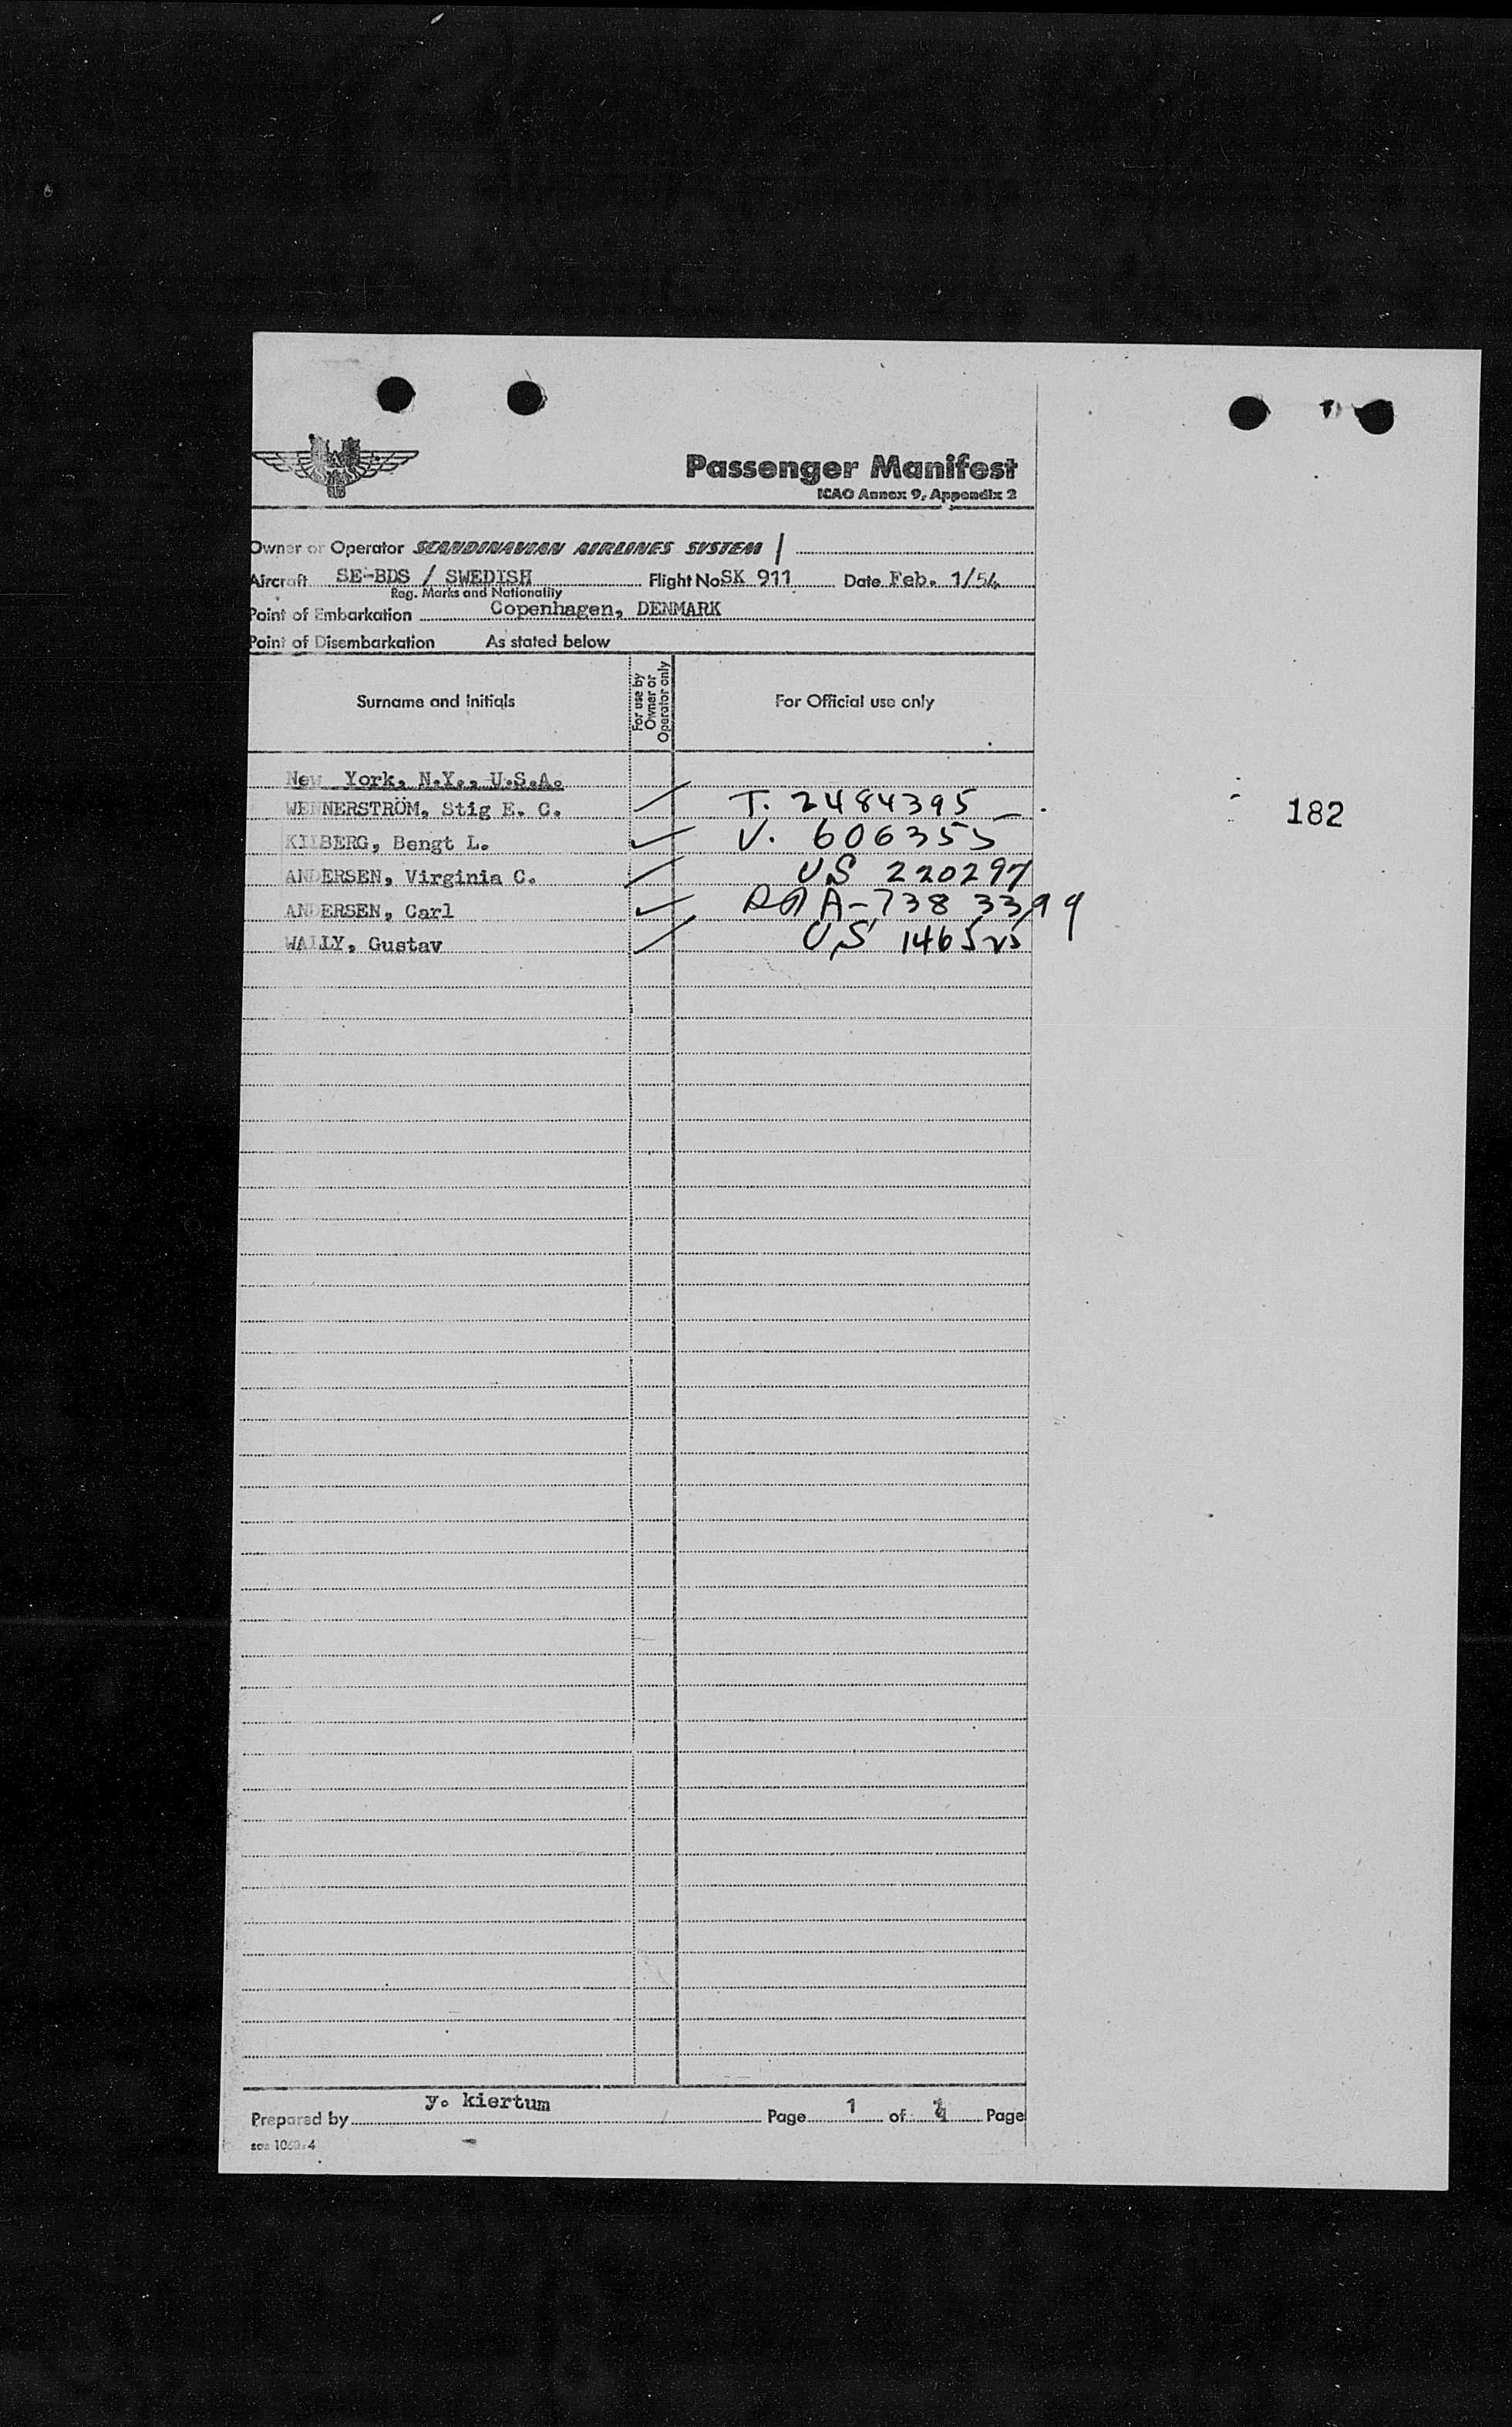 Passenger Manifest
ICAO Annex 9, Appendix 2
Owner or Operator SCANDINAVIAN AIRLINES SYSTEM /
Aircraft SE-BDS / SWEDISH Flight No SK 911 Date Feb. 1/54
Reg. Marks and Nationality
Point of Embarkation Copenhagen, DENMARK
Point of Disembarkation As stated below
Surname and Initials For use by Owner or Operator only For Official use only
New York, N.Y., U.S.A.
WENNERSTRÖM, Stig E. C. T. 2484395 182
KILBERG, Bengt L. V. 606355
ANDERSEN, Virginia C. US 220297
ANDERSEN, Carl A-738 3399
WALLY, Gustav US
y. kiertum
Prepared by Page 1 of Page
sas